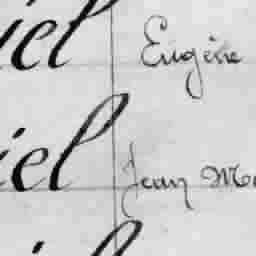 iel Eugène
iel Jean Ma
iel